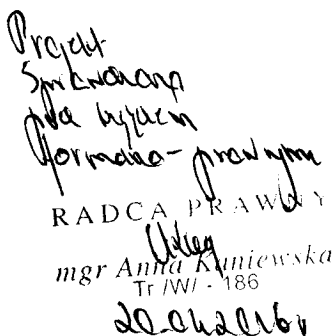 Projekt
Sprawdzono
pod względem
formalno-prawnym
RADCA PRAWNY
mgr Anna Kuniewska
Tr /W/ - 186